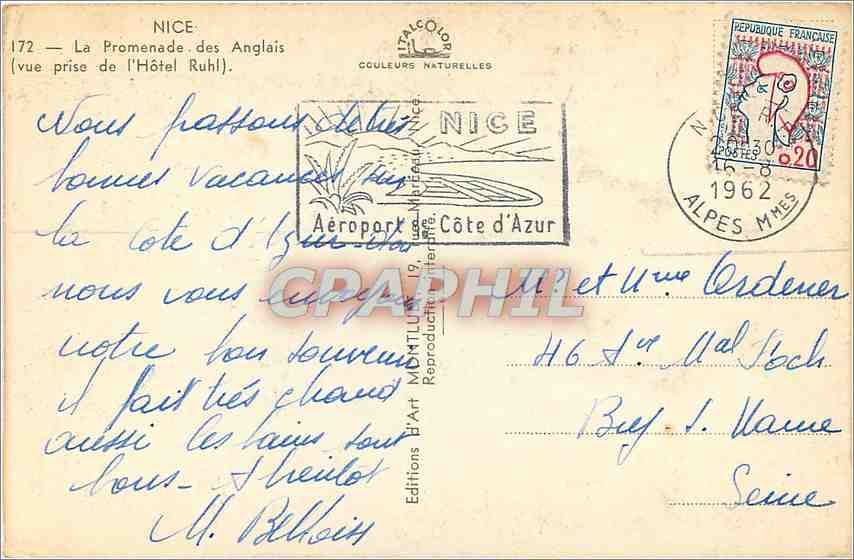 NICE
172 — La Promenade des Anglais
(vue prise de l'Hôtel Ruhl).
ITALCOLOR
COULEURS NATURELLES
REPUBLIQUE FRANÇAISE
POSTES
0,20
20H30
16-8
1962
ALPES MMES
NICE
Aéroport Côte d'Azur
Nous passons de très
bonnes vacances sur
la Cote d'Azur d'où
nous vous envoyons
notre bon souvenir
il fait très chaud
aussi les bains sont
bons - A bientôt
M.
Mr et Mme Ordener
46 Ave Mal Foch
Bry s. Marne
Seine
Editions d'Art MONTLUET, 19, rue Marceau, Nice.
Reproduction interdite.
CPAPHIL